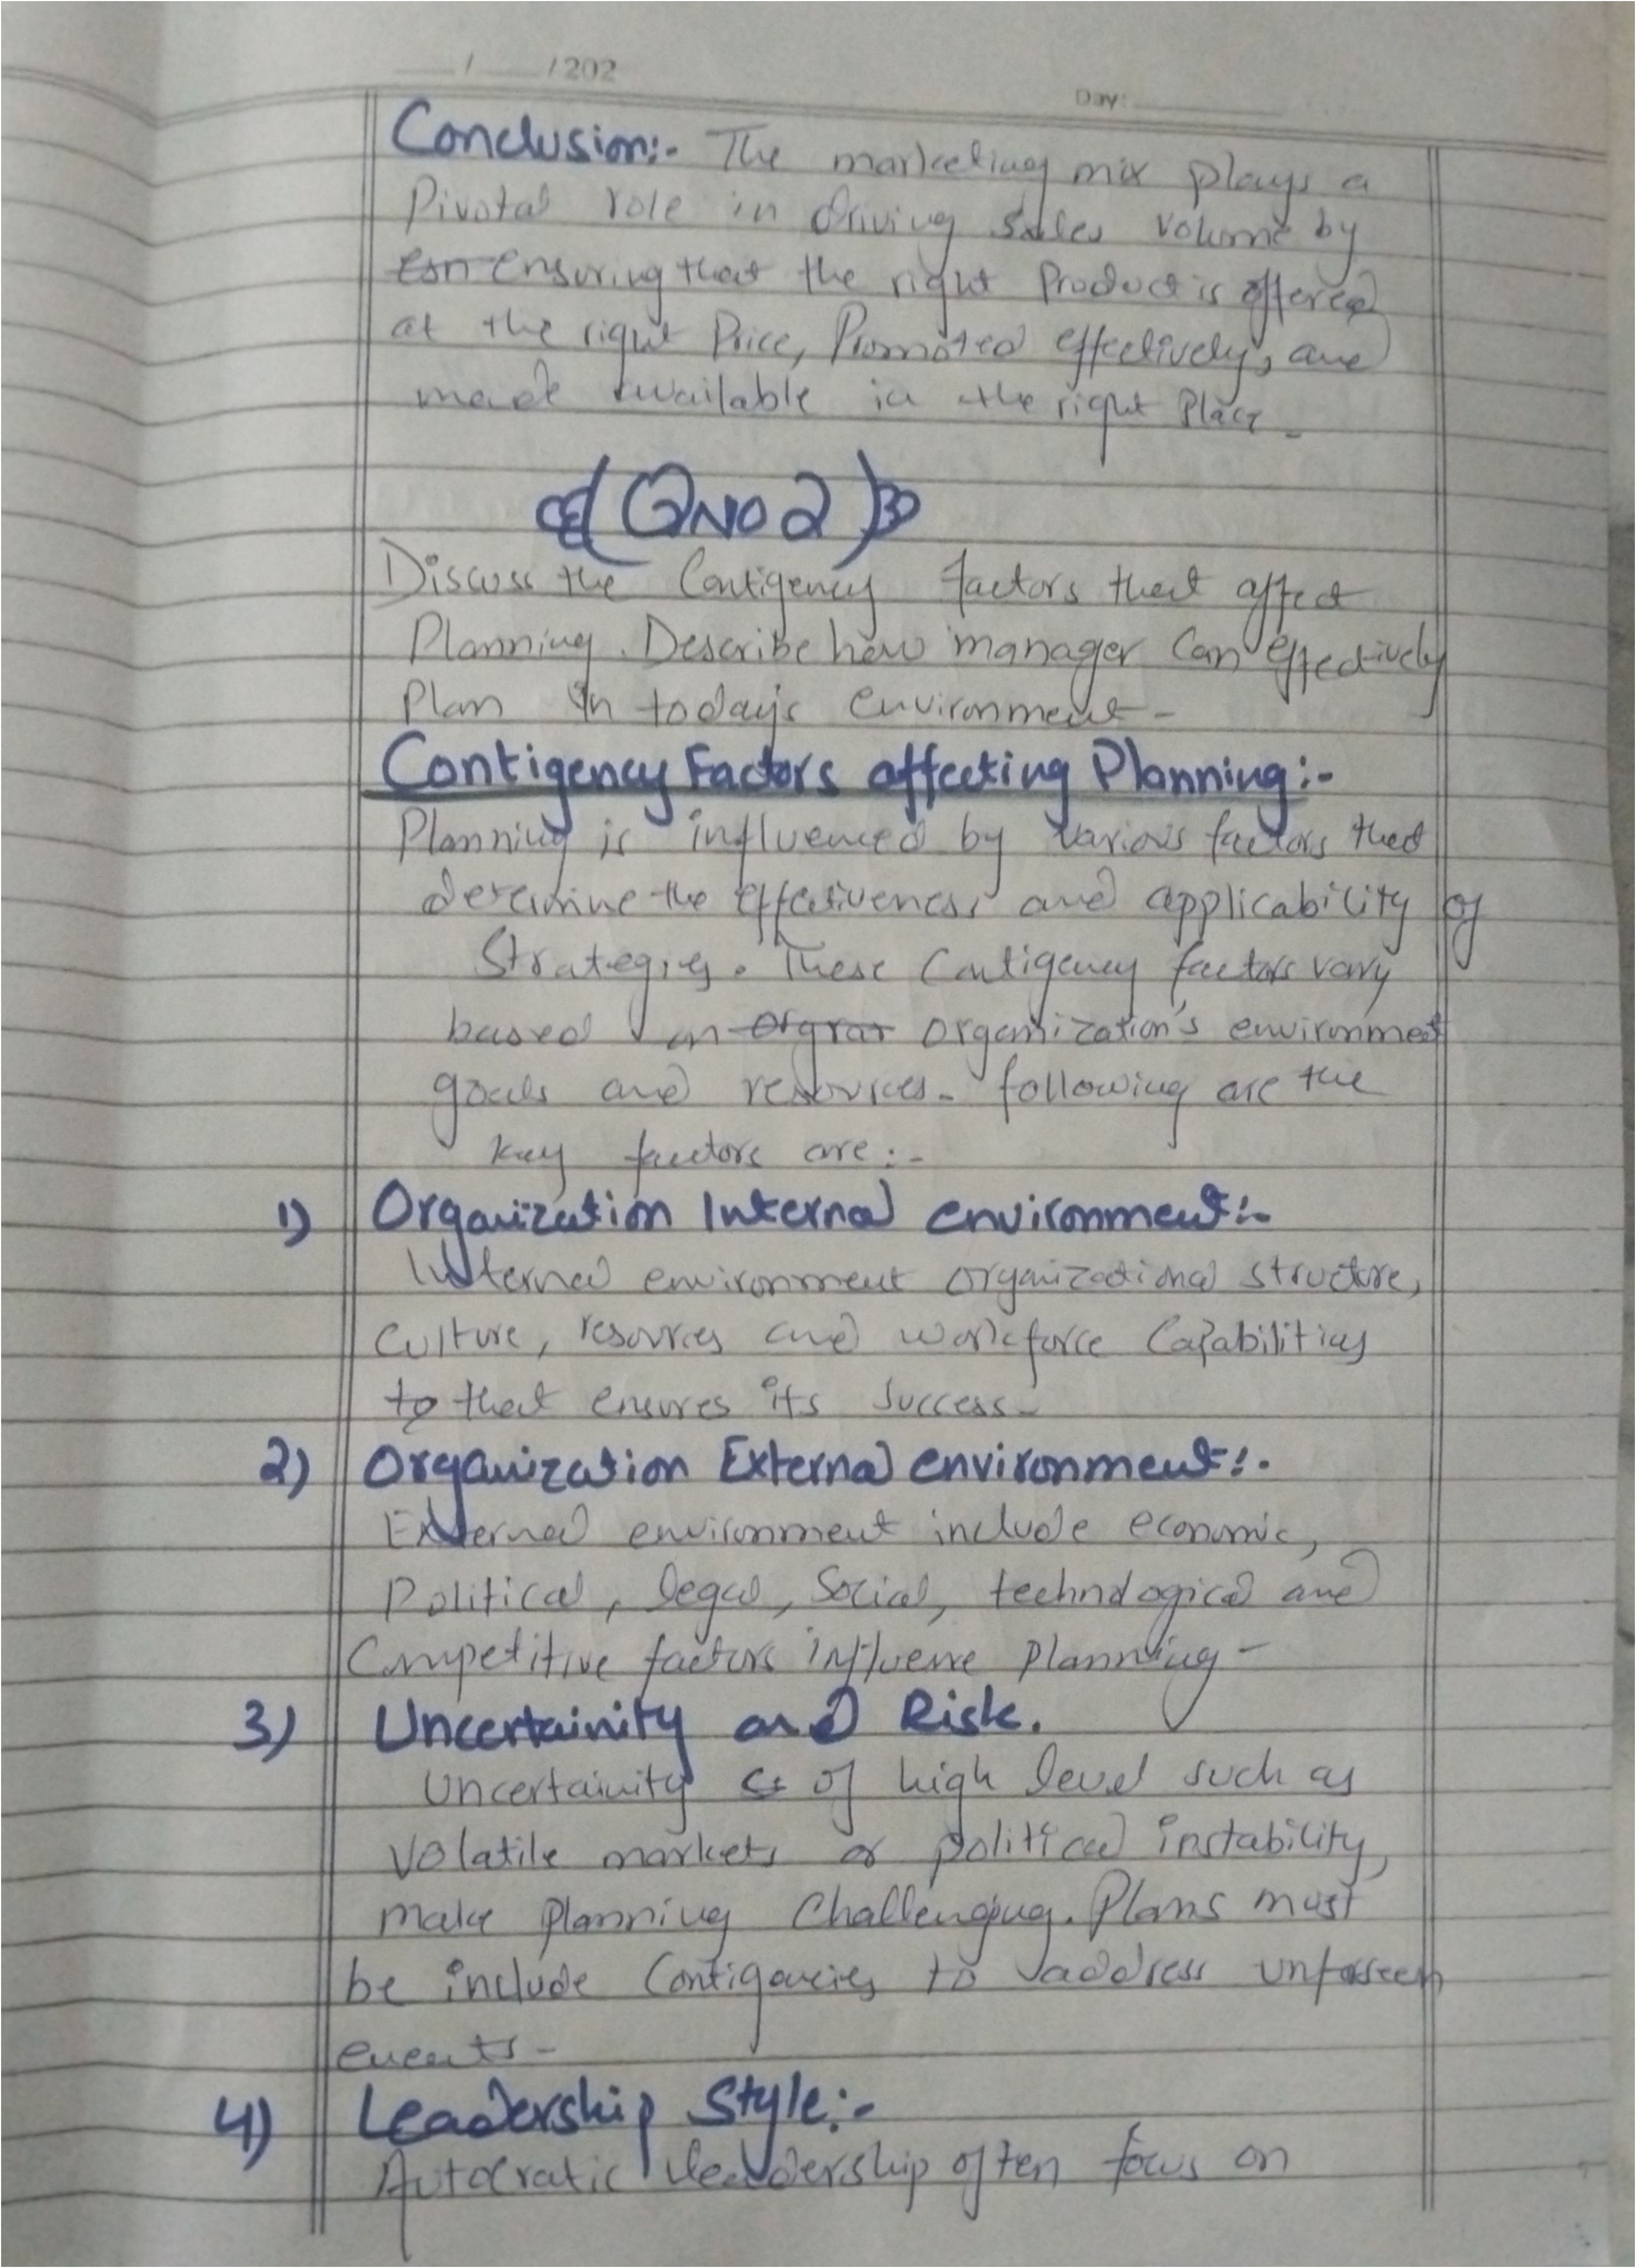 ___/___/202
Day: ___
Conclusion:- The marketing mix plays a
Pivotal role in driving Sales Volume by
esn ensuring that the right Product is offered
at the right Price, Promoted effectively, and
made available in the right Place -
(Q No 2)
Discuss the Contigency factors that affect
Planning. Describe how manager can effectively
Plan in today's environment -
Contigency Factors affecting Planning:-
Planning is influenced by various factors that
determine the effectiveness and applicability of
Strategies. These Contigency factors vary
based an orgrar organization's environment
goals and resources - following are the
key factors are:-
1) Organization Internal environment:-
Internal environment organizational structure,
Culture, resources and workforce Capabilities
to that ensures its success -
2) Organization External environment:-
External environment include economic,
Political, legal, Social, technological and
Competitive factors influence planning -
3) Uncertainity and Risk.
Uncertainity of high level such as
Volatile markets or political instability,
make planning Challenging. Plans must
be include Contigencies to address unforseen
events -
4) Leadership Style:-
Autocratic leadership often focus on